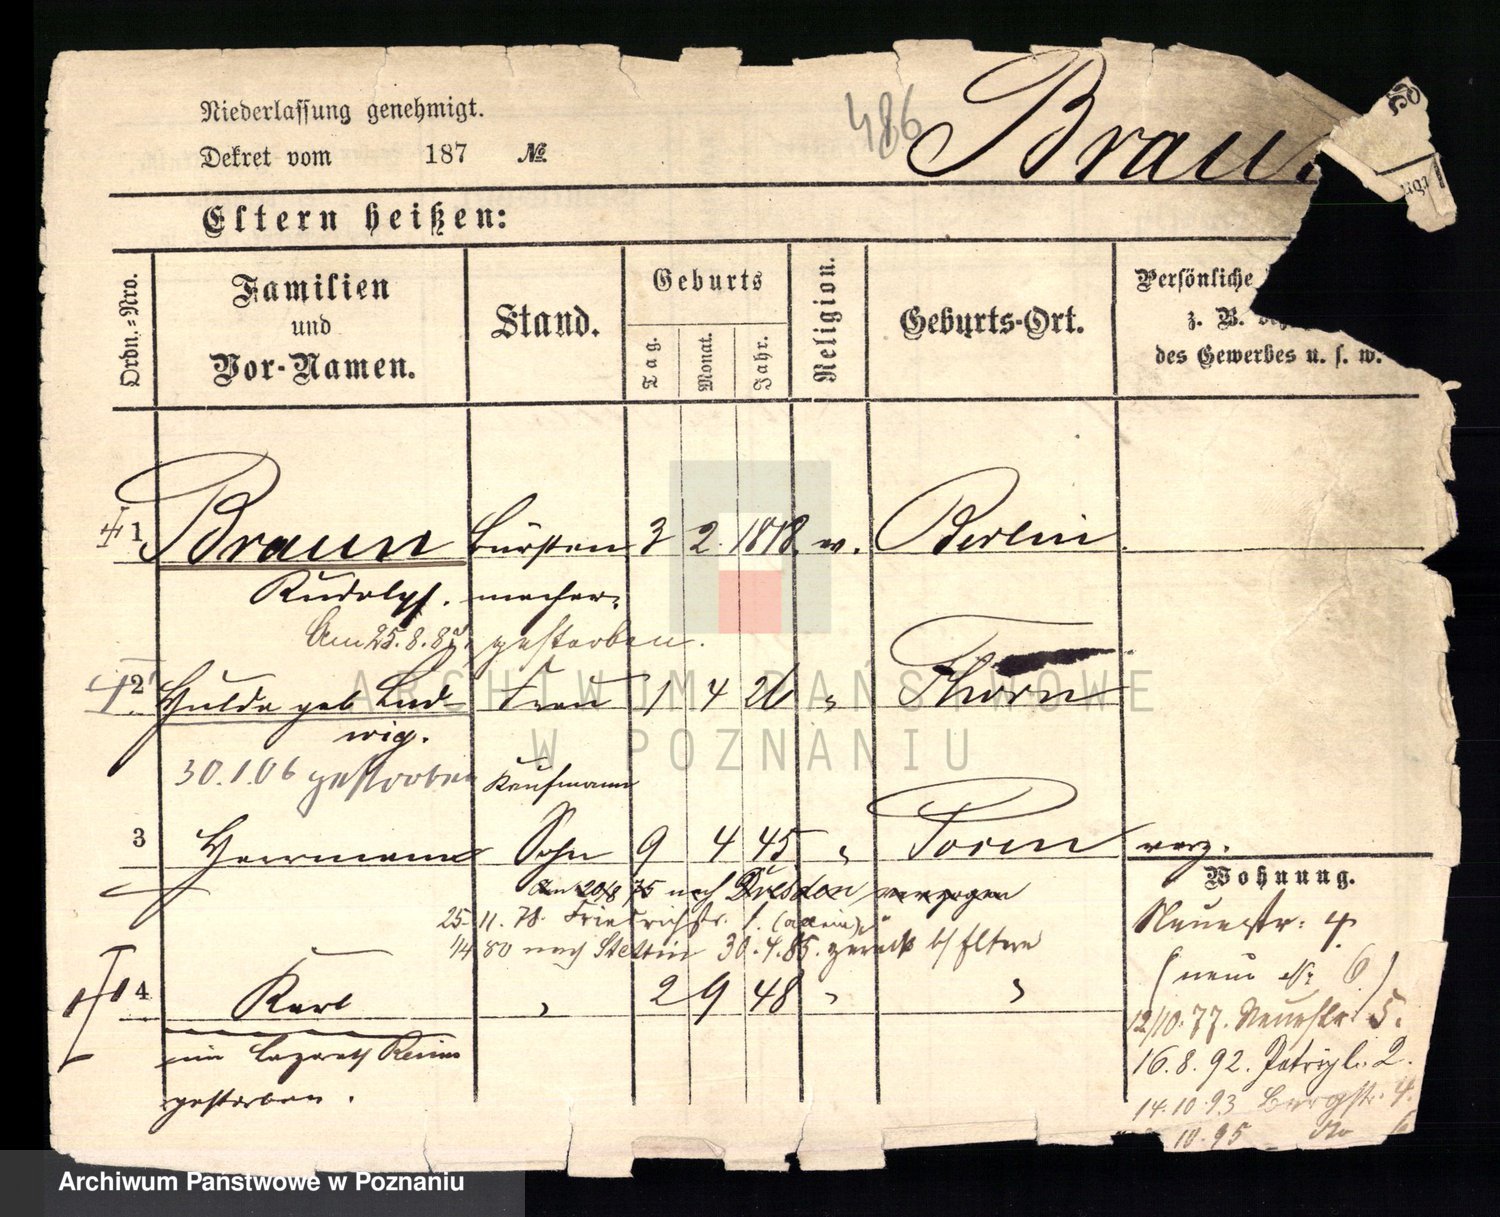 Niederlassung genehmigt.
Dekret vom 187 №
486
Brau
Eltern heißen:
Ordn.-Nro.
Familien und Vor-Namen.
Stand.
Geburts
Tag.
Monat.
Jahr.
Religion.
Geburts-Ort.
Persönliche
z. B.
des Gewerbes u. s. w.
1 Braun Bürsten 3 2. 1818. w. Berlin
Rudolph. macher.
Am 25.8.8 gestorben.
2 Hulda geb Lud- Frau 1 4 26 " Thorn
wig.
30.1.06 gestorben Kaufmann
3 Herrmann Sohn 9 4 45 " Posen verz.
Am 20/8 75 nach Dresden verzogen
25. 11. 78. Friedrichstr. 1. (allein)
1/4 80 nach Stettin 30.4.85. zurück b/ Eltern
4 Karl " 2 9 48 " "
im Lazareth Reims
gestorben.
Wohnung.
Neuestr. 4
(neue № 6)
12/10.77. Neuestr. 5.
16.8.92. 2.
14.10.93 Bergstr. 4.
10.95 No
ARCHIWUM PAŃSTWOWE
W POZNANIU
Archiwum Państwowe w Poznaniu